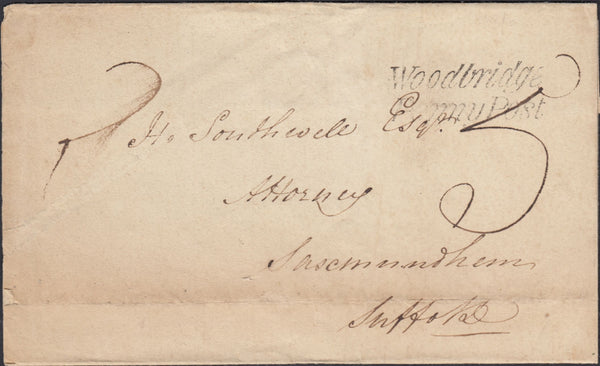 Woodbridge
Penny Post
1 5
H. Southwell Esqr.
Attorney
Saxmundham
Suffolk